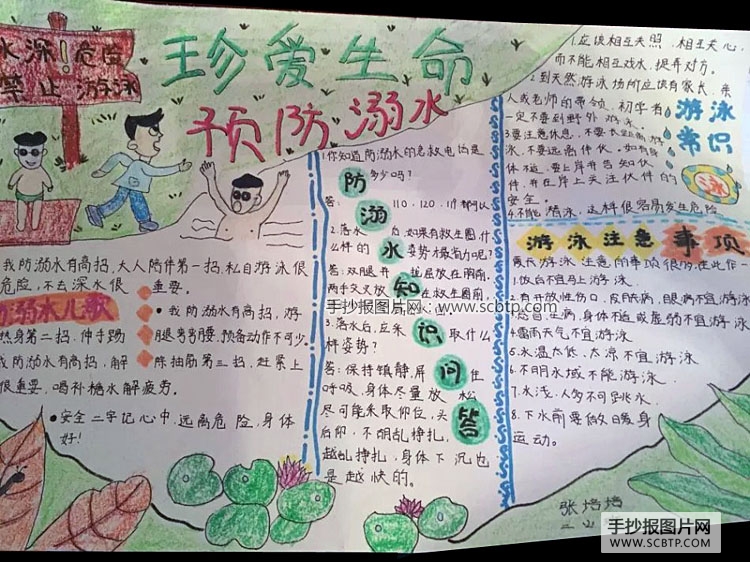 水深!危险
禁止游泳
珍爱生命
预防溺水
我防溺水有高招,大人陪伴第一招,私自游泳很
危险,不去深水很
重要。
防溺水儿歌
我防溺水有高招,游
热身第二招,伸手踢
腿弯弯腰,预备动作不可少。
我防溺水有高招,解
除抽筋第三招,赶紧上
很重要,喝补糖水解疲劳。
安全二字记心中,远离危险,身体
好!
防溺水知识问答
1.你知道防溺水的急救电话是
多少吗?
答: 110、120、119都可以
2.落水后,如果有救生圈,什
么样的姿势最省力呢?
答:双腿并拢屈放在胸前,
两手交叉放在救生圈前,
3.落水后,应采取什么
样姿势?
答:保持镇静,屏住
呼吸,身体尽量放松
尽可能采取仰位,头
后仰,不胡乱挣扎,
越乱挣扎,身体下沉也
是越快的。
游泳常识
泳
1.应该相互关照,相互关心,
而不能相互戏水,捉弄对方。
2.到天然游泳场所应该有家长,亲
人或老师的带领,初学者
一定不要到野外游泳。
3.要注意休息,不要长距离游
泳,不要远离伙伴,如有身
体不适,要上岸并告知伙
伴,并在岸上关注伙伴的
安全。
4.不能潜泳,这样很容易发生危险
游泳注意事项
夏天游泳注意的事项很多,在此作一
1.饭后不宜马上游泳.
2.有开放性伤口,皮肤病,眼病不宜游泳
感冒,生病,身体不适或虚弱不宜游泳
4.雷雨天气不宜游泳
5.水温太低,太凉不宜游泳
6.不明水域不能游泳
7.水浅,人多不可跳水.
8.下水前要做暖身
运动。
手抄报图片网:www.scbtp.com
手抄报图片网
WWW.SCBTP.COM